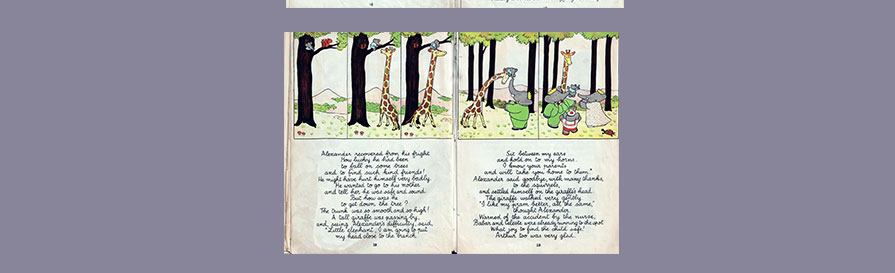 Alexander recovered from his fright.
How lucky he had been
to fall on some trees
and to find such kind friends!
He might have hurt himself very badly.
He wanted to go to his mother
and tell her he was safe and sound.
But how was he
to get down the tree?
The trunk was so smooth and so high!
A tall giraffe was passing by,
and, seeing Alexander's difficulty, said,
"Little elephant, I am going to put
my head close to the branch.
18
Sit between my ears
and hold on to my horns.
I know your parents
and will take you home to them."
Alexander said goodbye, with many thanks,
to the squirrels,
and settled himself on the giraffe's head.
The giraffe walked very gently.
"I like my pram better, all the same,"
thought Alexander.
Warned of the accident by the nurse,
Babar and Celeste were already running to the spot.
What joy to find the child safe!
Arthur too was very glad.
19